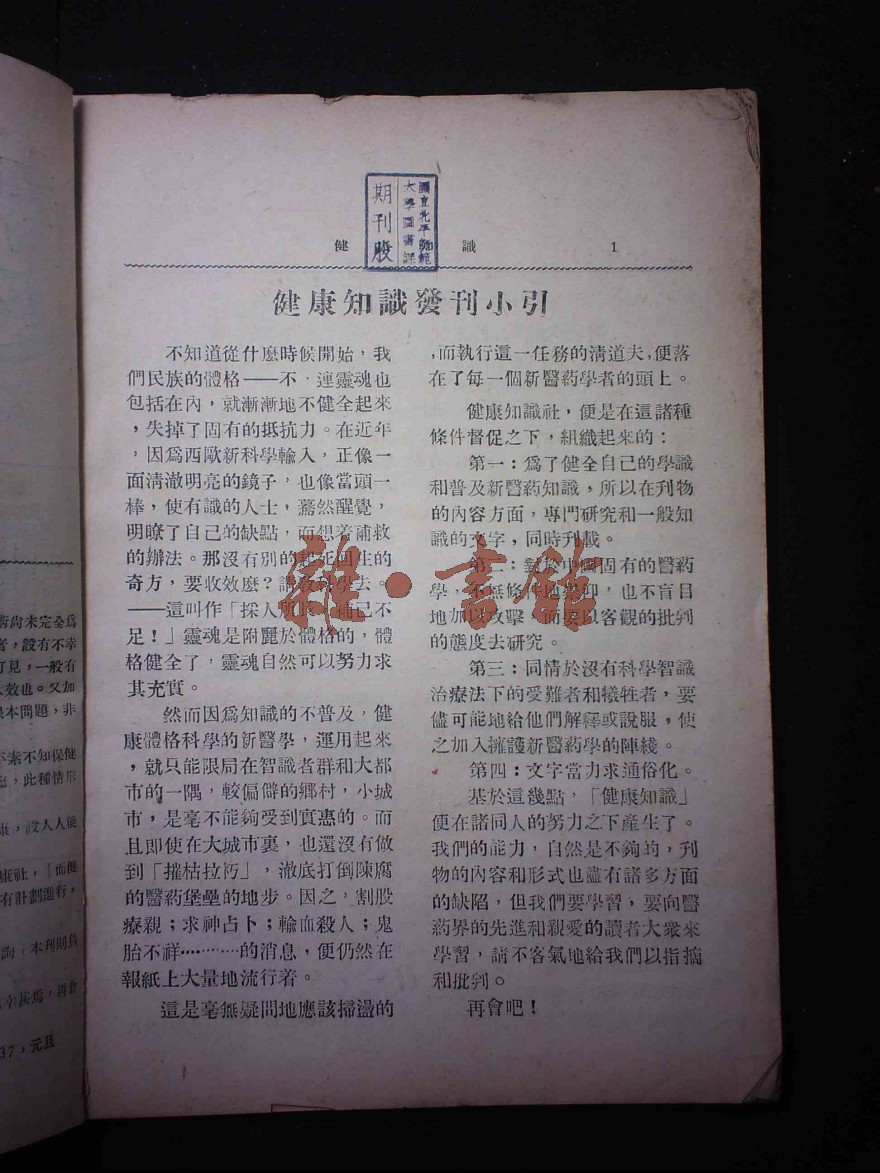 健
識
1
國立北平師範
大學圖書課
期刊股
健康知識發刊小引
不知道從什麽時候開始，我
們民族的體格——不，連靈魂也
包括在內，就漸漸地不健全起來
，失掉了固有的抵抗力。在近年
，因爲西歐新科學輸入，正像一
面清澈明亮的鏡子，也像當頭一
棒，使有識的人士，驀然醒覺，
明瞭了自己的缺點，而想着補救
的辦法。那沒有別的起死回生的
奇方，要收效麽？請教科學去。
——這叫作「採人所長，補己不
足！」靈魂是附麗於體格的，體
格健全了，靈魂自然可以努力求
其充實。
然而因爲知識的不普及，健
康體格科學的新醫學，運用起來
，就只能限局在智識者群和大都
市的一隅，較偏僻的鄉村，小城
市，是毫不能夠受到實惠的。而
且卽使在大城市裏，也還沒有做
到「摧枯拉朽」，澈底打倒陳腐
的醫葯堡壘的地步。因之，割股
療親；求神占卜；輸血殺人；鬼
胎不祥…………的消息，便仍然在
報紙上大量地流行着。
這是毫無疑問地應該掃盪的
，而執行這一任務的淸道夫，便落
在了每一個新醫葯學者的頭上。
健康知識社，便是在這諸種
條件督促之下，組織起來的：
第一：爲了健全自己的學識
和普及新醫葯知識，所以在刊物
的內容方面，專門研究和一般知
識的文字，同時刊載。
第二：對於中國固有的醫葯
學，不無條件地崇仰，也不盲目
地加以攻擊，而要以客觀的批判
的態度去研究。
第三：同情於沒有科學智識
治療法下的受難者和犧牲者，要
儘可能地給他們解釋或說服，使
之加入擁護新醫葯學的陣綫。
第四：文字當力求通俗化。
基於這幾點，「健康知識」
便在諸同人的努力之下產生了。
我們的能力，自然是不夠的，刊
物的內容和形式也儘有諸多方面
的缺陷，但我們要學習，要向醫
葯界的先進和親愛的讀者大衆來
學習，請不客氣地給我們以指摘
和批判。
再會吧！
雜·書館
尙未完全爲
者，設有不幸
可見，一般有
效也。又加
本問題，非
不素不知保健
，此種情形
康，設人人能
康社，「而健
有計劃進行，
詢，本刊則負
幸甚焉，再
37，元旦